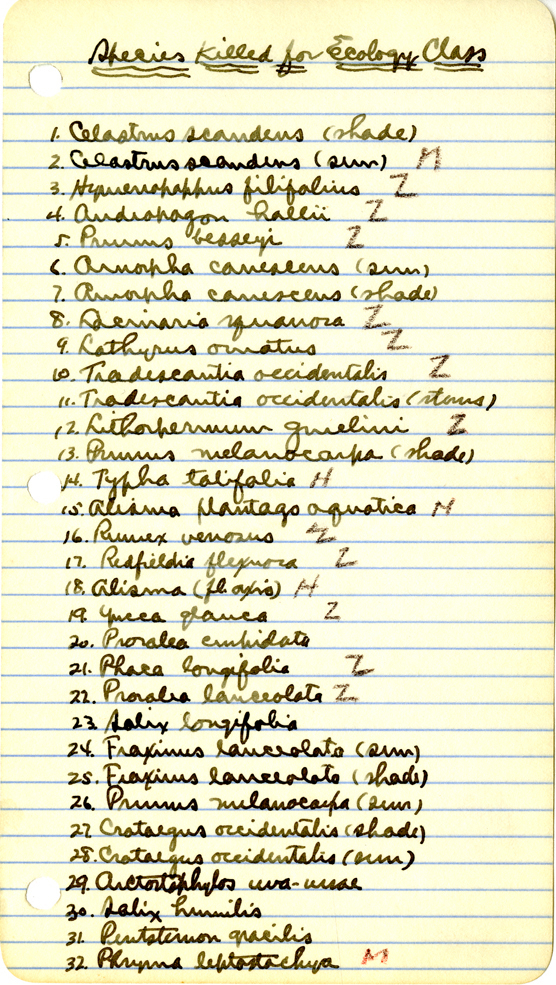 Species Killed for Ecology Class
1. Celastrus scandens (shade)
2. Celastrus scandens (sun) M
3. Hymenopappus filifolius Z
4. Andropogon hallii Z
5. Prunus besseyi Z
6. Amorpha canescens (sun)
7. Amorpha canescens (shade)
8. Lacinaria squanosa Z
9. Lathyrus ornatus Z
10. Tradescantia occidentalis Z
11. Tradescantia occidentalis (stems)
12. Lithospermum gmelini Z
13. Prunus melanocarpa (shade)
14. Typha latifolia H
15. Alisma plantago aquatica M
16. Rumex venosus Z
17. Redfieldia flexuosa Z
18. Alisma H
19. Yucca glauca Z
20. Psoralea cuspidata
21. Phaca longifolia Z
22. Psoralea lanceolata Z
23. Salix longifolia
24. Fraxinus lanceolata (sun)
25. Fraxinus lanceolata (shade)
26. Prunus melanocarpa (sun)
27. Crataegus occidentalis (shade)
28. Crataegus occidentalis (sun)
29. Arctostaphylos uva-ursae
30. Salix humilis
31. Pentstemon gracilis
32. Phryma leptostachya M